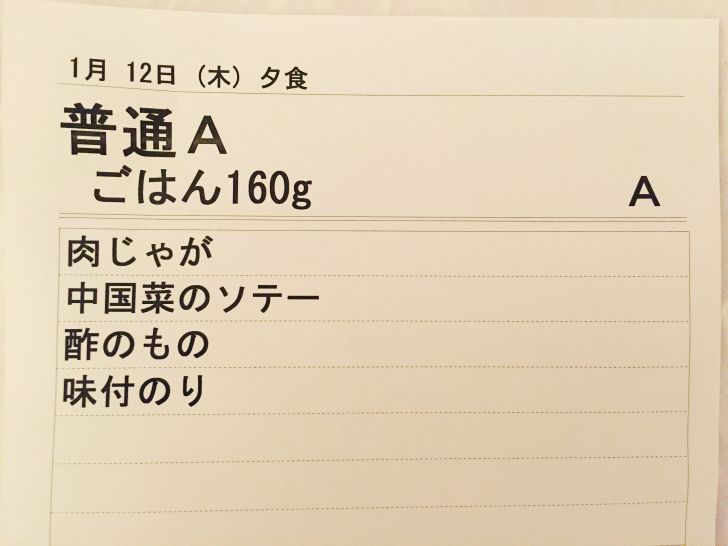 1月 12日 (木) 夕食
普通A
ごはん160g A
肉じゃが
中国菜のソテー
酢のもの
味付のり